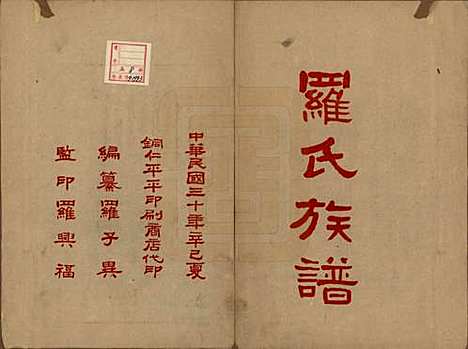 羅氏族譜
中華民國三十年辛巳夏
銅仁平平印刷商店代印
編纂羅子異
監印羅興福